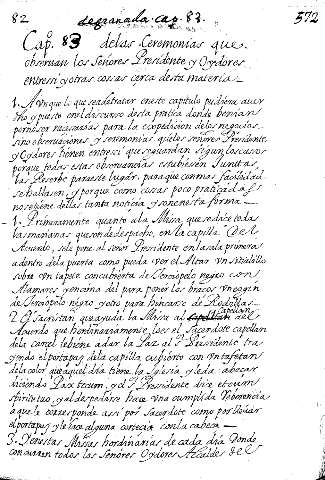 82 de granada cap. 83. 572
Capº 83 delas Ceremonias que
obseruan los Señores Presidente y Oydores
entresi y otras cosas cerca desta materia
1. Aunque lo que sea de tratar en este capitulo pudiera auer
dho y puesto en el discurso desta pratica donde
para la expedicion delos negocios
sino obseruaciones, y serimonias que los señores Presidente
y Oydores tienen entresi que
porque todas estas obseruancias estubiesen Juntas,
las Reserbo para este lugar. para que con mas facilidad
se hallasen, y porque como cosas poco
no se tiene dellas tanta noticia y son en esta forma
1. Primeramente quanto ala Missa, que se dice todas
las mañanas que son de despacho, en la capilla del
Acuerdo, se le pone al señor Presidente en la sala primera
adentro dela puerta como pueda Ver el Altar Un sitialillo
sobre Un tapete con cubierta de terciopelo negro con
Alamares y encima del para poner los braços Un cogin
de terciopelo negro y otro para hincarse de Rodillas.
2. O Sacristan que ayuda la Missa al Capellan del
Acuerdo que hordinariamente es el Sacerdote capellan
dela carcel lebiene a dar la Paz al Sr Presidente tra
yendo el portapaz dela capilla cubierto con Un tafetan
dela color que aquel dia tiene la Iglesia y le da abeçar
diciendo Pax tecum, y el sr Presidente dice et cum
Spiritu tuo, y al despedirse hace Una cumplida Reberencia
a que le corresponde assi por Sacerdote como por
el portapaz y le hace alguna cortecia con la cabeça
3. Y en estas Missas hordinarias de cada dia Donde
concurren todos los Señores Oydores Alcaldes del